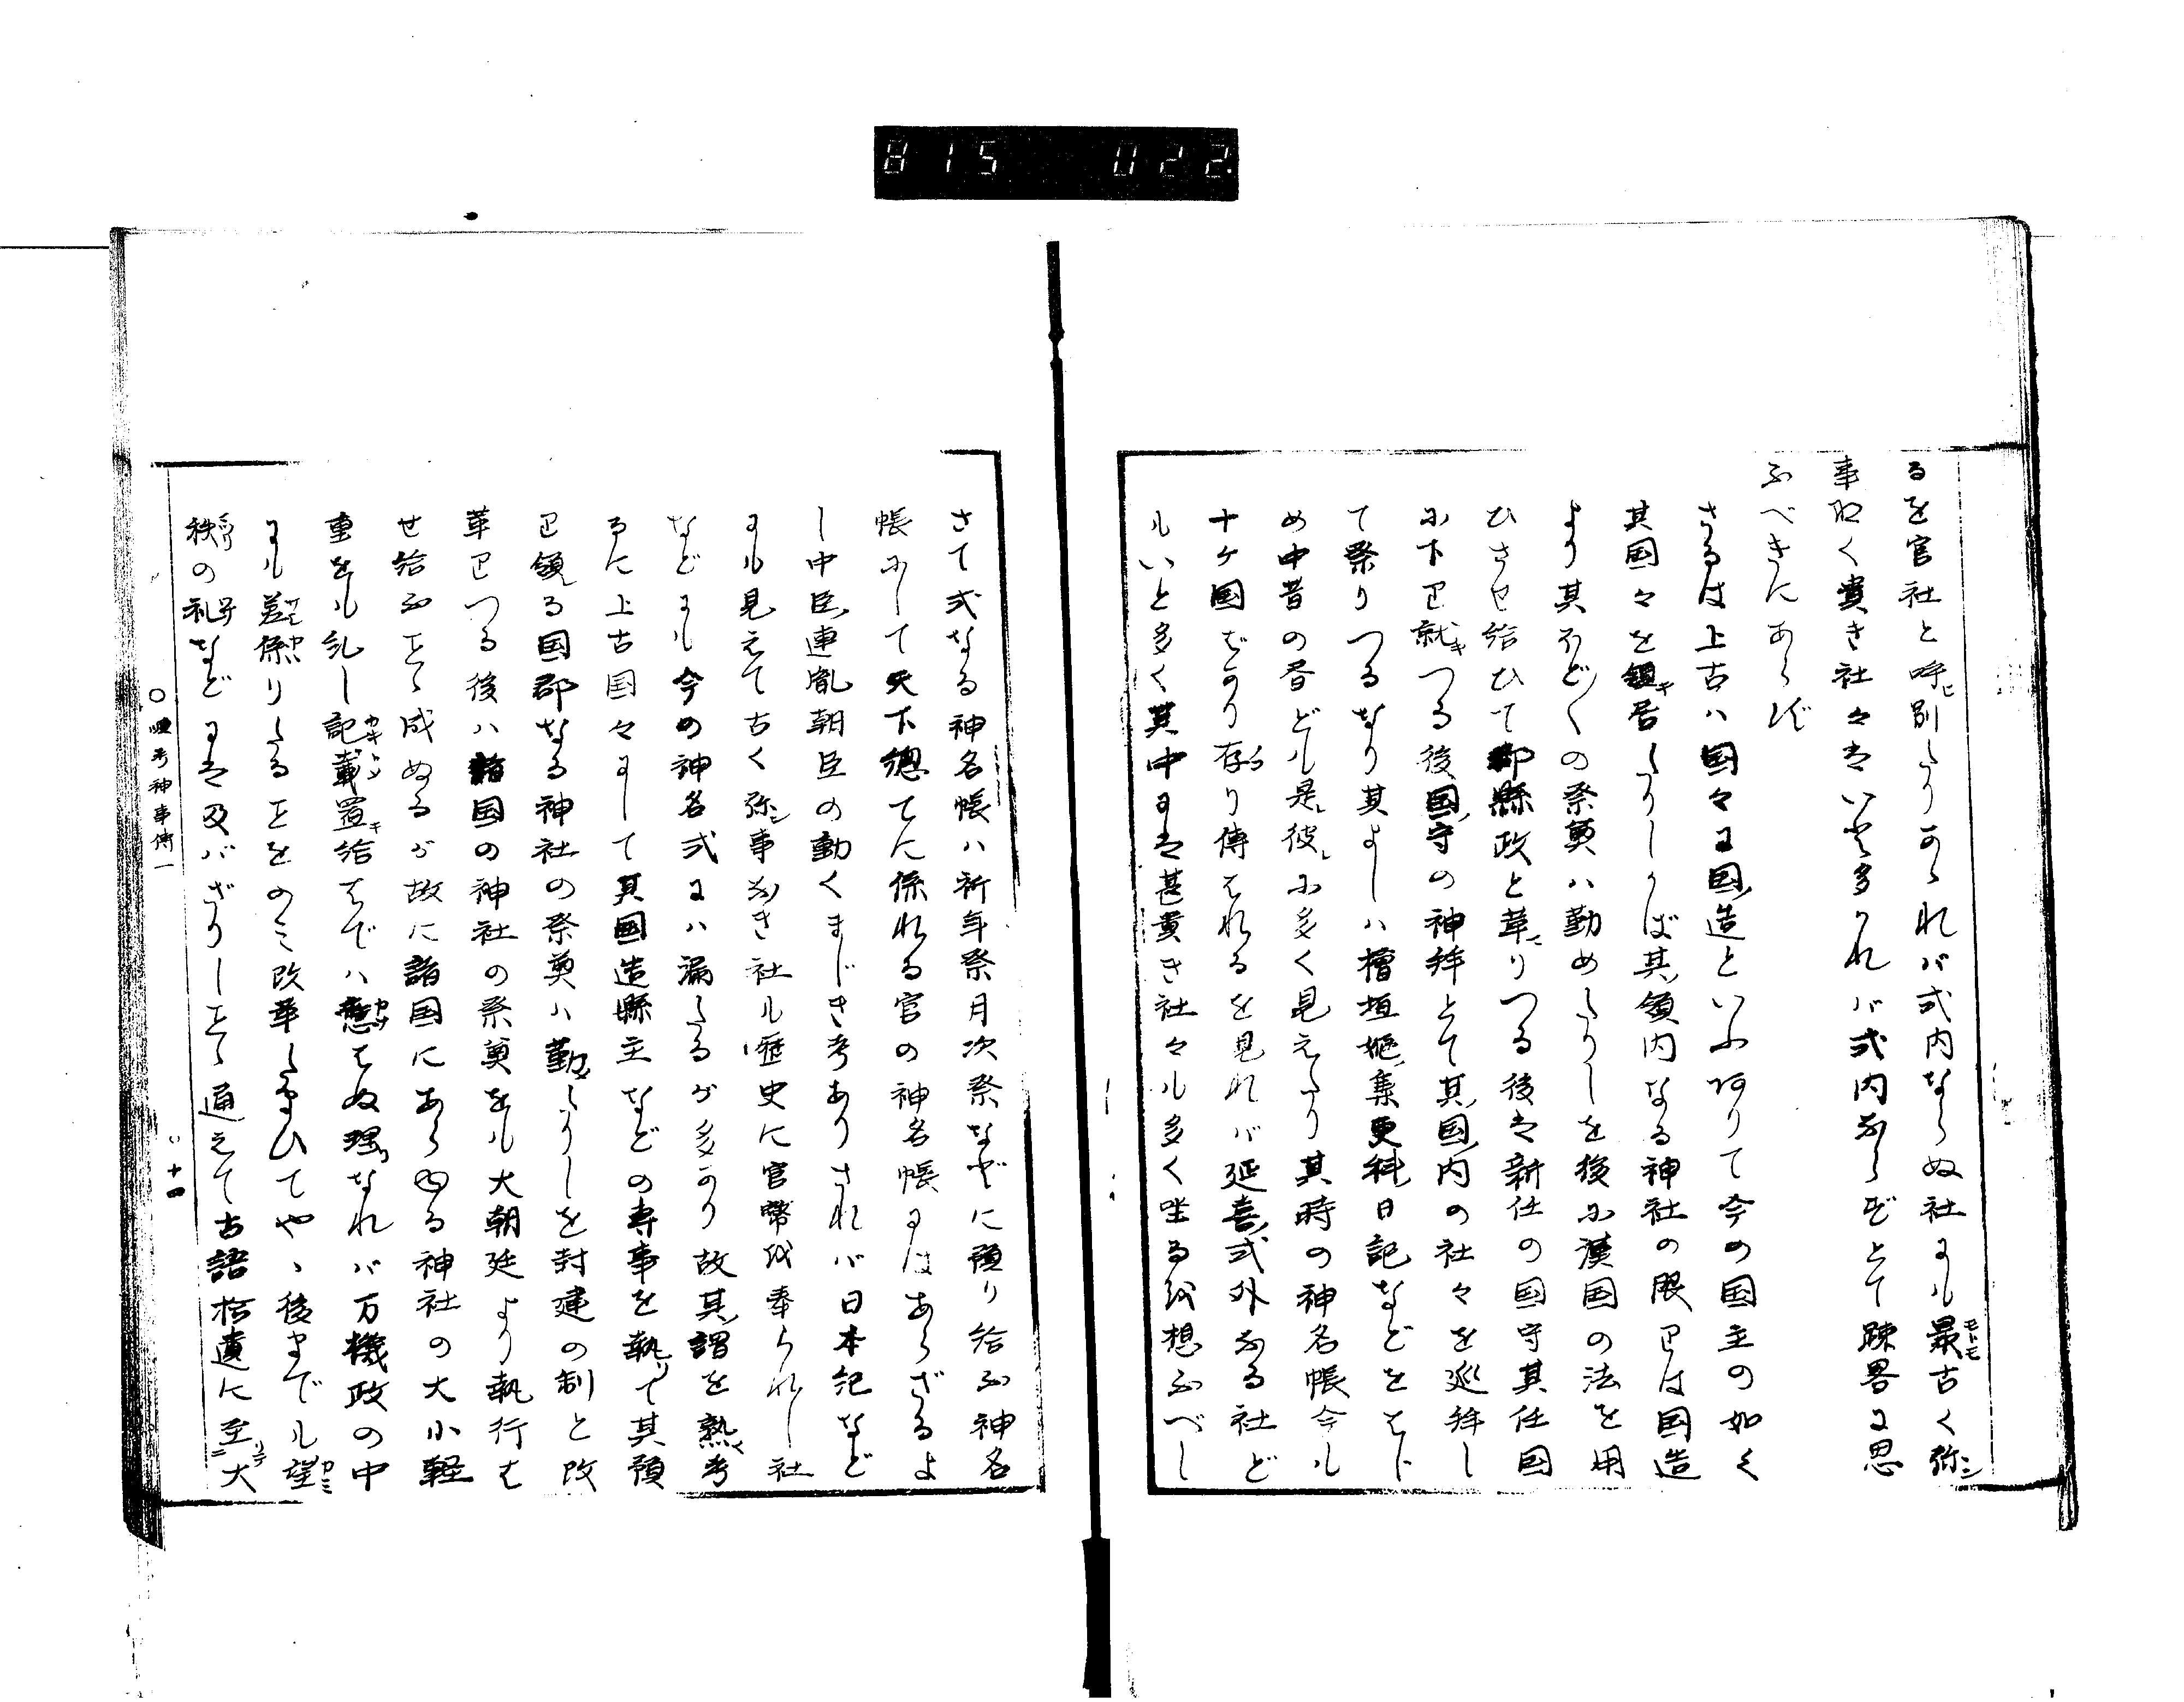 815 022
るを官社と呼ヒ別たりあられバ式内ならぬ社にも最モトモ古く弥シ
事取く貴き社々はいと多かれバ式内ならずとて疎畧に思
ふべきにあらず
さるは上古ハ国々に国造といふ有りて今の国主の如く
其国々を領キ居たりしかば其領内なる神社の限りは国造
より其ほど〱の祭奠ハ勤めたりしを後に漢国の法を用
ひさせ給ひて郡縣政と革りつる後は新任の国守其任国
に下り就キつる後国守の神拜とて其国内の社々を巡拜し
て祭りつるなり其よしハ檜垣嫗集更科日記などをはじ
め中昔の書ども是彼に多く見えたり其時の神名帳今も
十ケ国ばかり存り傳はれるを見れバ延喜式外なる社ど
もいと多く其中には甚貴き社々も多く坐るを想ふべし
さて式なる神名帳ハ祈年祭月次祭などに預り給ふ神名
帳にして天下總てに係れる官の神名帳にはあらざるよ
し中臣連胤朝臣の動くまじき考ありされバ日本紀など
にも見えて古く弥シ事なき社も歴史に官幣を奉られし社
などにも今の神名式にハ漏たるが多かり故其謂を熟く考
るに上古国々にして其国造縣主などの専事を執りて其預
り領る国郡なる神社の祭奠ハ勤めたりしを封建の制と改
革りつる後ハ諸国の神社の祭奠をも大朝廷より執行は
せ給ふこと成ぬるが故に諸国にあらゆる神社の大小軽
重をも乱し記載カキノセ置キ給はでハ憲はぬ理なれバ万機政の中
にも差係りたることをのみ改革たまひてや、後までも望
秩の礼などには及バざりしこと通えて古語拾遺に至リテニ大
〇順考神事傳一
〇十四